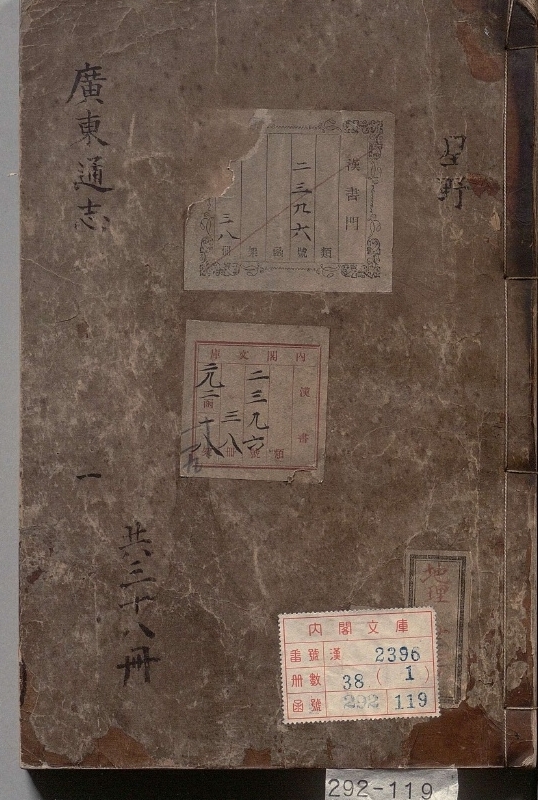 廣東通志
一
共三十八冊
星野
漢書門
二三九六
三八
類 號 函 架 冊
內閣文庫
漢書
二三九六
三八
類 號 冊
地理
內閣文庫
番號 漢 2396
冊數 38 (1)
函號 292 119
292-119